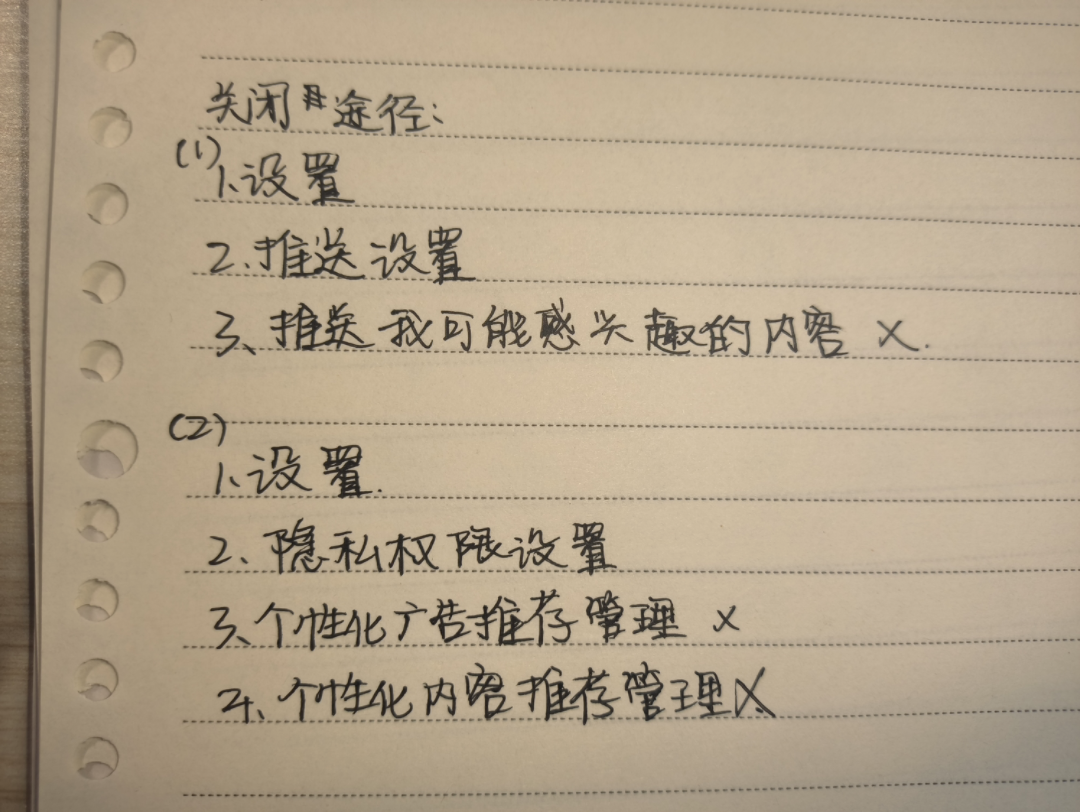 关闭途径:
(1)
1、设置
2.推送设置
3、推送我可能感兴趣的内容 ×.
(2)
1、设置.
2、隐私权限设置
3、个性化广告推荐管理 ×
4、个性化内容推荐管理 ×